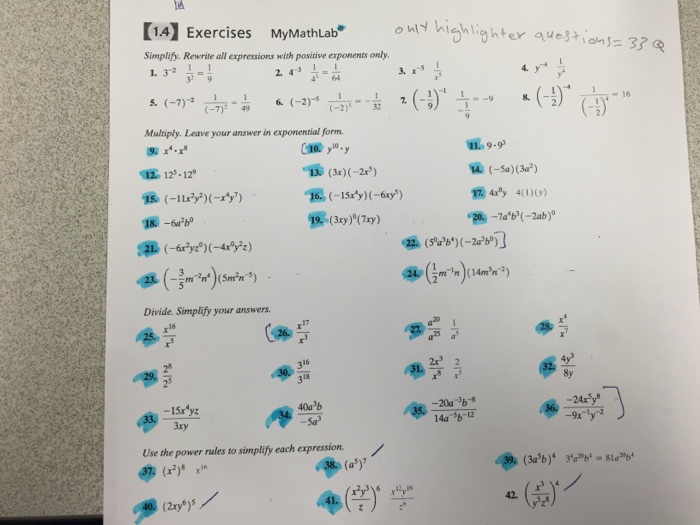 1.4 Exercises MyMathLab only highlighter questions = 33 Q
Simplify. Rewrite all expressions with positive exponents only.
1. 3⁻² 1/3² = 1/9 2. 4⁻³ 1/4³ = 1/64 3. x⁻⁵ 1/x⁵ 4. y⁻⁴ 1/y⁴
5. (−7)⁻² 1/(−7)² = 1/49 6. (−2)⁻⁵ 1/(−2)⁵ = −1/32 7. (−1/9)⁻¹ 1/(−1/9) = −9 8. (−1/2)⁻⁴ 1/(−1/2)⁴ = 16
Multiply. Leave your answer in exponential form.
9. x⁴·x⁸ 10. y¹⁰·y 11. 9·9³
12. 12⁵·12⁹ 13. (3x)(−2x⁵) 14. (−5a)(3a²)
15. (−11x²y²)(−x⁴y⁷) 16. (−15x⁴y)(−6xy⁵) 17. 4x⁰y 4(1)(y)
18. −6a²b⁰ 19. (3xy)⁰(7xy) 20. −7a⁴b³(−2ab)⁰
21. (−6x²yz⁰)(−4x⁰y²z) 22. (5⁰a³b⁴)(−2a³b⁰)
23. (−3/5 m⁻²n⁴)(5m²n⁻⁵) 24. (1/2 m⁻¹n)(14m³n⁻²)
Divide. Simplify your answers.
25. x¹⁶/x⁵ 26. x¹⁷/x³ 27. a²⁰/a²⁵ 1/a⁵ 28. x⁴/x⁷
29. 2⁸/2⁵ 30. 3¹⁶/3¹⁸ 31. 2x³/x⁸ 2/x⁵ 32. 4y³/8y
33. −15x⁴yz/3xy 34. 40a³b/−5a³ 35. −20a⁻³b⁻⁸/14a⁻⁵b⁻¹² 36. −24x⁵y⁸/−9x⁻¹y⁻²
Use the power rules to simplify each expression.
37. (x²)⁸ x¹⁶ 38. (a⁵)⁷ 39. (3a⁵b)⁴ 3⁴a²⁰b⁴ = 81a²⁰b⁴
40. (2xy⁶)⁵ 41. (x²y³/z)⁶ x¹²y¹⁸/z⁶ 42. (x³/y⁵z⁸)⁴